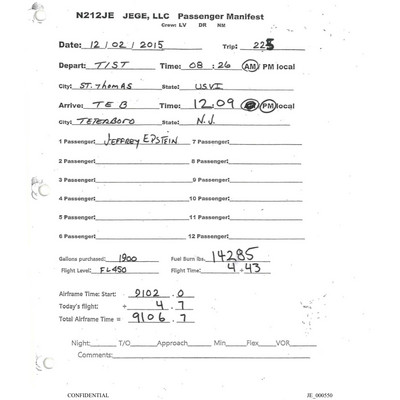 N212JE JEGE, LLC Passenger Manifest
Crew: LV DR NM
Date: 12/02/2015 Trip: 225
Depart: TIST Time: 08:26 AM/ PM local
City: ST. THOMAS State: USVI
Arrive: TEB Time: 12:09 PM local
City: TETERBORO State: N.J.
1 Passenger: JEFFREY EPSTEIN 7 Passenger:
2 Passenger: 8 Passenger:
3 Passenger 9 Passenger:
4 Passenger: 10 Passenger:
5 Passenger: 11 Passenger:
6 Passenger: 12 Passenger:
Gallons purchased: 1900 Fuel Burn lbs. 14285
Flight Level: FL450 Flight Time: 4+43
Airframe Time: Start: 9102.0
Today's flight: + 4.7
Total Airframe Time = 9106.7
Night: T/O Approach Min Flex VOR
Comments:
CONFIDENTIAL JE_000550